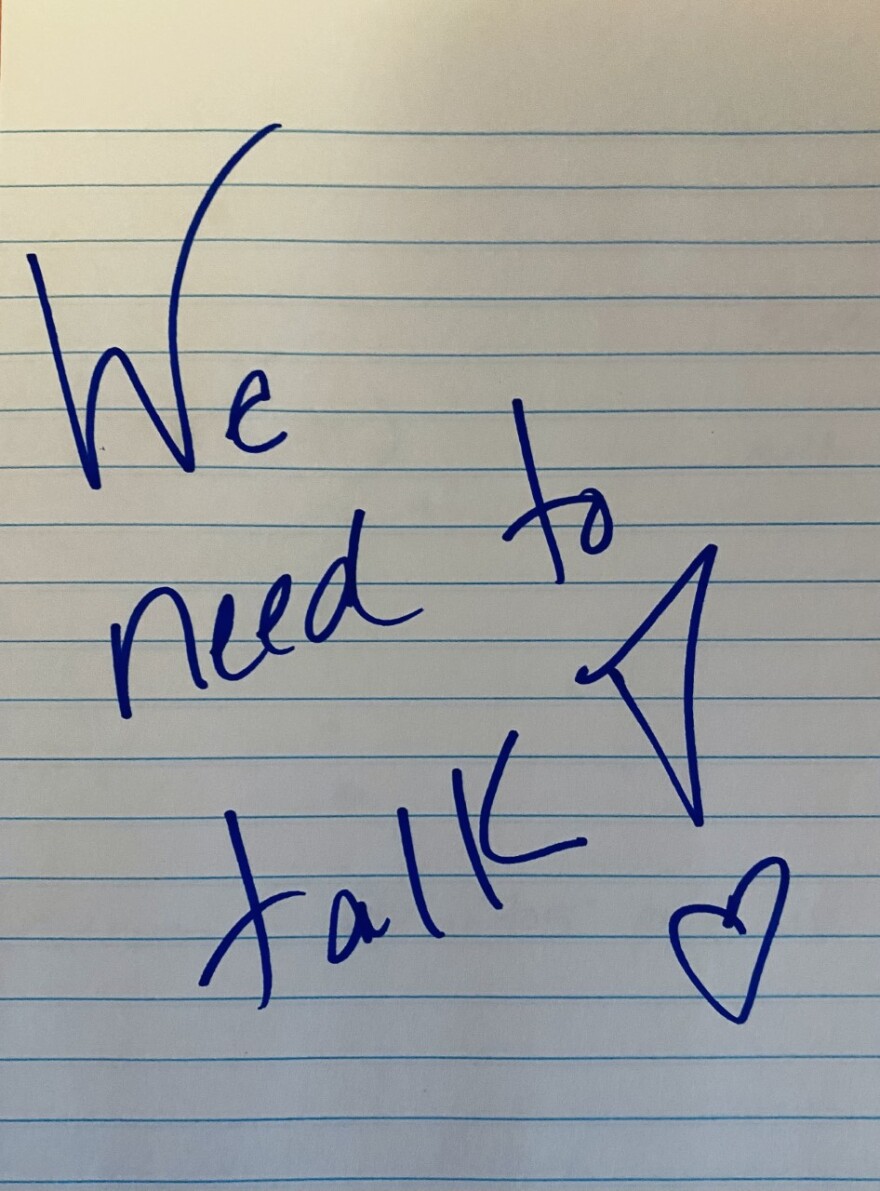 We
need to
talk!